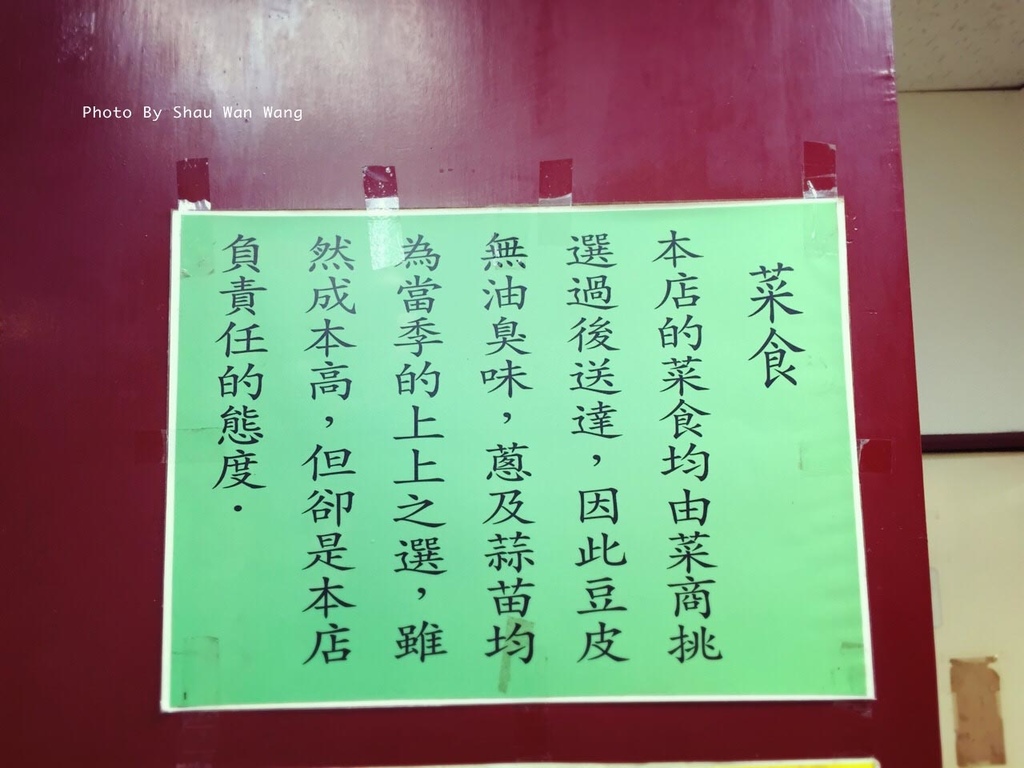 Photo By Shau Wan Wang
菜食
本店的菜食均由菜商挑
選過後送達，因此豆皮
無油臭味，蔥及蒜苗均
為當季的上上之選，雖
然成本高，但卻是本店
負責任的態度．